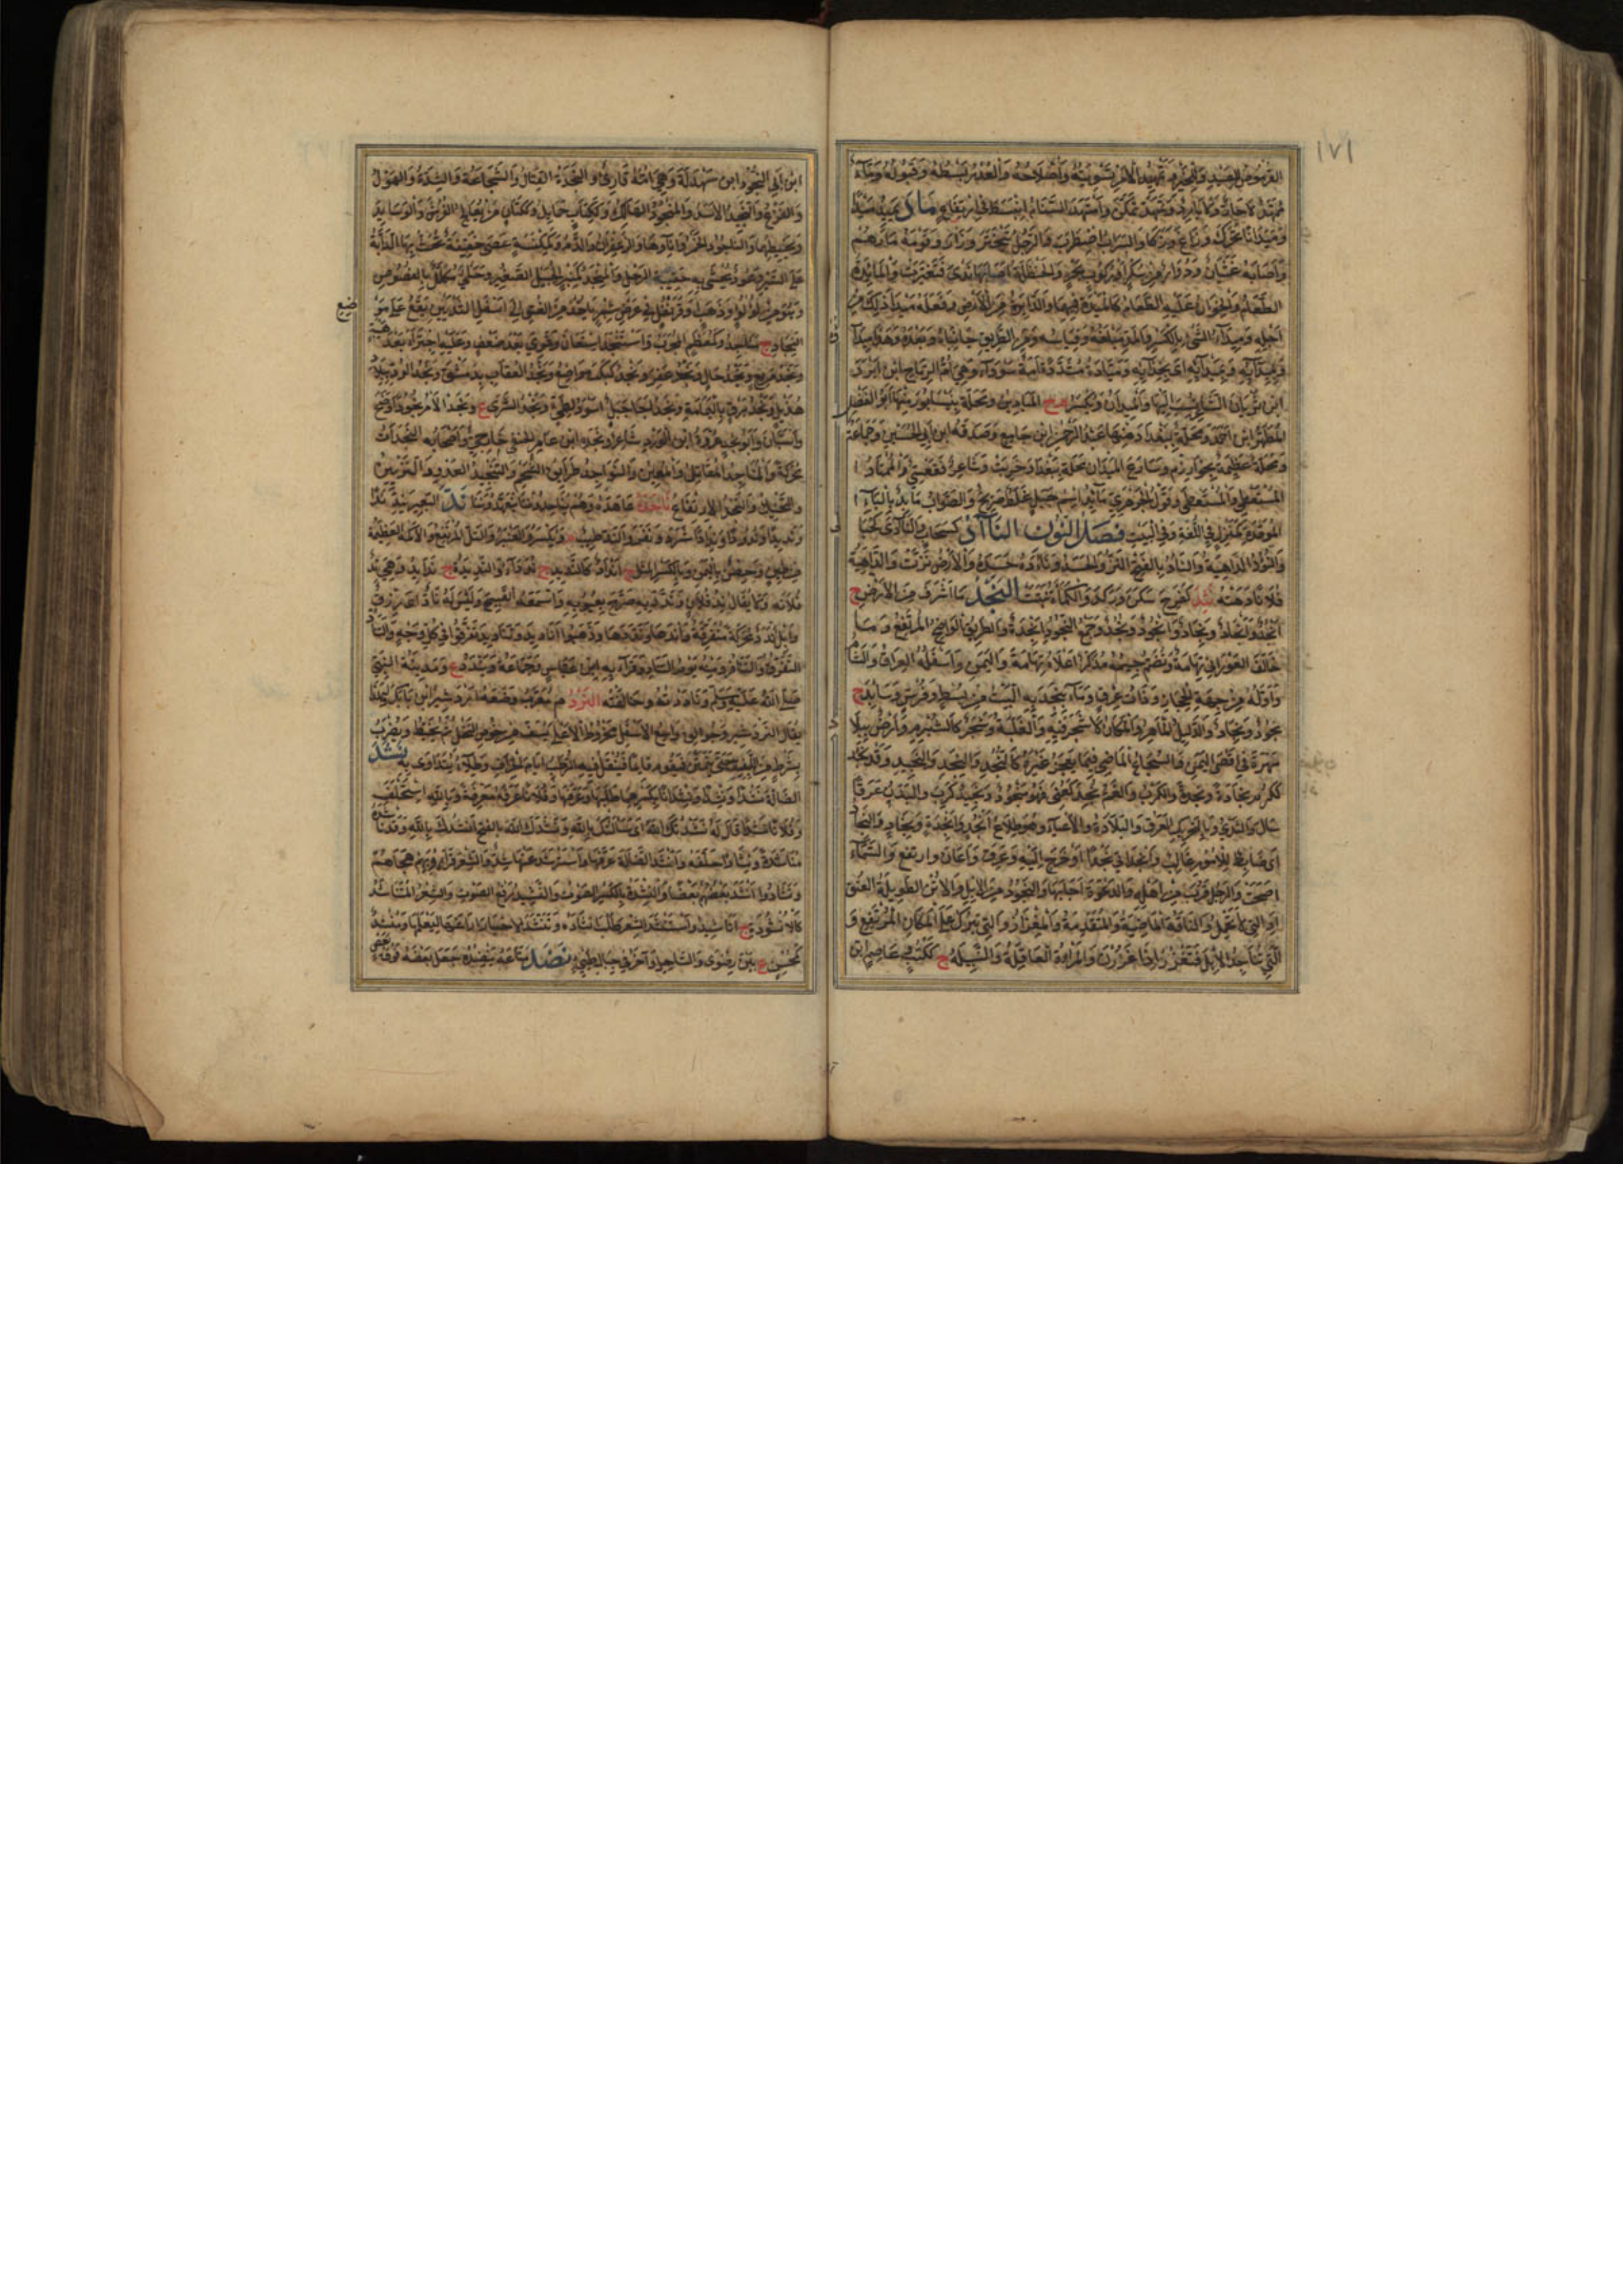 ١٧١
وتمهيد الامر تسويته واصلاحه والعذر بسطه وقبوله وماء
ممهد لا حار ولا بارد وتمهد تمكن واستمهد السنام انبسط في ارتفاع ماد يميد ميدا
وميدانا تحرك وزاغ وزكا والسراب اضطرب والرجل تبختر وزار وقومه مارهم
واصابه غثيان ودوار من سكر او ركوب بحر والحنظلة اصابها ندى فتغيرت والمائدة
الطعام والخوان عليه الطعام كالميدة فيهما والدائرة من الارض وفعله ميدا ذلك من
اجله وميداء الشيء بالكسر والمد مبلغه وقياسه ومن الطريق جانباه وبعده وهذا ميداؤه
وبميدائه اى بحذائه وميادة مشددة امة سوداء وهي ام الرماح ابن ابرد
ابن ثريان الشاعر نسب اليها والميدان ويكسر م ج الميادين ومحلة بنيسابور منها ابو الفضل
ابن احمد ومحلة ببغداد منها عبد الرحمن ابن جامع وصدقه ابن ابي الحسين وجماعة
ومحلة عظيمة بخوارزم وشارع الميدان محلة ببغداد خربت وشاعر فقعسي والممتاد
المستعطي والمستعطى وقول الجوهري مائد اسم جبل غلط صريح والصواب مابد بالباء
الموحدة كمنزل في اللغة وفي البيت فصل النون الناآد كسحاب والنآدى كحبا
والنؤد الداهية والناد بالفتح النز والحسد وناده حسده والارض نزت والداهية
فلانا دهته نثد كفرح سكن وركد والكماة نبتت النجد ما اشرف من الارض ج
انجد وانجاد ونجاد ونجود ونجد وجمع النجود انجدة والطريق الواضح المرتفع وما
خالف الغور اي تهامة وتضم جيمه مذكر اعلاه تهامة واليمن واسفله العراق والشام
واوله من جهة الحجاز ذات عرق وما ينجد به البيت من بسط وفرش ووسائد ج
نجود ونجاد والدليل الماهر والمكان لا شجر فيه والغلبة وشجر كالشبرم وارض ببلاد
مهرة في اقصى اليمن والشجاع الماضي فيما يعجز غيره كالنجد والنجد والنجيد وقد نجد
ككرم نجادة ونجدة والكرب والغم نجد كعني فهو منجود ونجيد كرب والبدن عرقا
سال والثدي وبالتحريك العرق والبلادة والاعياء وهو طلاع انجد وانجدة ونجاد والنجاد
اى ضابط للامور غالب وانجد اتى نجدا او خرج اليه وعرق واعان وارتفع والسماء
اصحت والرجل قرب من اهله والدعوة اجابها والنجود من الابل والاتن الطويلة العنق
او التي لا تحمل والناقة الماضية والمتقدمة والمغزار والتي تبرك على المكان المرتفع و
التي تناجد الابل فتغزر اذا غزرن والمراة العاقلة والنبيلة ج ككتب وعاصم ابن
ابن ابي النجود ابن بهدلة وهي امه قارئ والنجدة القتال والشجاعة والشدة والهول
والفزع والنجيد الاسد والمنجود الهالك وككتاب حمائل وككتان من يعالج الفرش والوسائد
ويخيطهما والناجود الخمر واناؤها والزعفران والدم وكمكنسة عصى خفيفة تحث بها الدابة
على السير وعود يحشى به حقيبة الرحل والمنجد كمنبر الجبيل الصغير وحلي مكلل بالفصوص
وهو من لؤلؤ وذهب او قرنفل في عرض شبر ياخذ من العنق الى اسفل الثديين يقع على موضع
النجاد ج مناجد وكمعظم المجرب واستنجد استعان وقوي بعد ضعف وعليه اجترا بعد هيبة
ونجد مريع ونجد خال ونجد عفر ونجد كبكب مواضع ونجد العقاب بدمشق ونجد الود ببلاد
هذيل ونجد برق باليمامة ونجد اجا جبل اسود لطيء ونجد الشرى ع ونجد الامر نجودا وضح
واستبان وابو نجد عروة ابن الورد شاعر ونجدة ابن عامر الحنفي خارجي واصحابه النجدات
محركة والمناجد المقاتل والمعين والنواجد طرائق الشحم والتنجيد العدو والتزيين
والتحنيك والتنجد الارتفاع ناجده عاهده ند البعير يند ندا
ونديدا وندودا وندادا شرد ونفر والند طيب م ويكسر او العنبر والتل المرتفع والاكمة العظيمة
من طين وحصن باليمن وبالكسر المثل ج انداد كالنديد ج نداء والنديدة ج ندائد وهي ند
فلانة ولا يقال ند فلان وندد به صرح بعيوبه واسمعه القبيح وليس له ناد اى رزق
وابل ندد محركة متفرقة وقد اندها ونددها وذهبوا اناديد وتناديد تفرقوا في كل وجه والتناد
التفرق والتنافر ومنه يوم التناد وقرا به ابن عباس وجماعة ويندد ع ومدينة النبي
صلى الله عليه وسلم وناددته خالفته النرد م معرب وضعه اردشير ابن بابك ولهذا
يقال النردشير وجوالق واسع الاسفل مخروط الاعلى يسف من خوص النخل ثم يخيط ويضرب
بشرط من الليف حتى يتمتن فيقوم قائما فينقل فيه الرطب ايام الخراف وطلاء يتداوى به نشد
الضالة نشدا ونشدة ونشدانا بكسرهما طلبها وعرفها وفلانا عرفه معرفة وبالله استحلف
وفلانا نشدا قال له نشدتك الله اى سالتك بالله ونشدك الله بالفتح انشدك بالله وقد ناشده
مناشدة ونشادا حلفه وانشد الضالة عرفها واسترشد عنها ضد والشعر قراه وبهم هجاهم
وتناشدوا انشد بعضهم بعضا والنشدة بالكسر الصوت والنشيد رفع الصوت والشعر المتناشد
كالانشودة ج اناشيد واستنشد الشعر طلب انشاده وتنشد الاخبار اراغها ليعلمها ومنشد
كمحسن ع بين رضوى والساحل واخر في جبال طيء نضد متاعه ينضده جعل بعضه فوق بعض